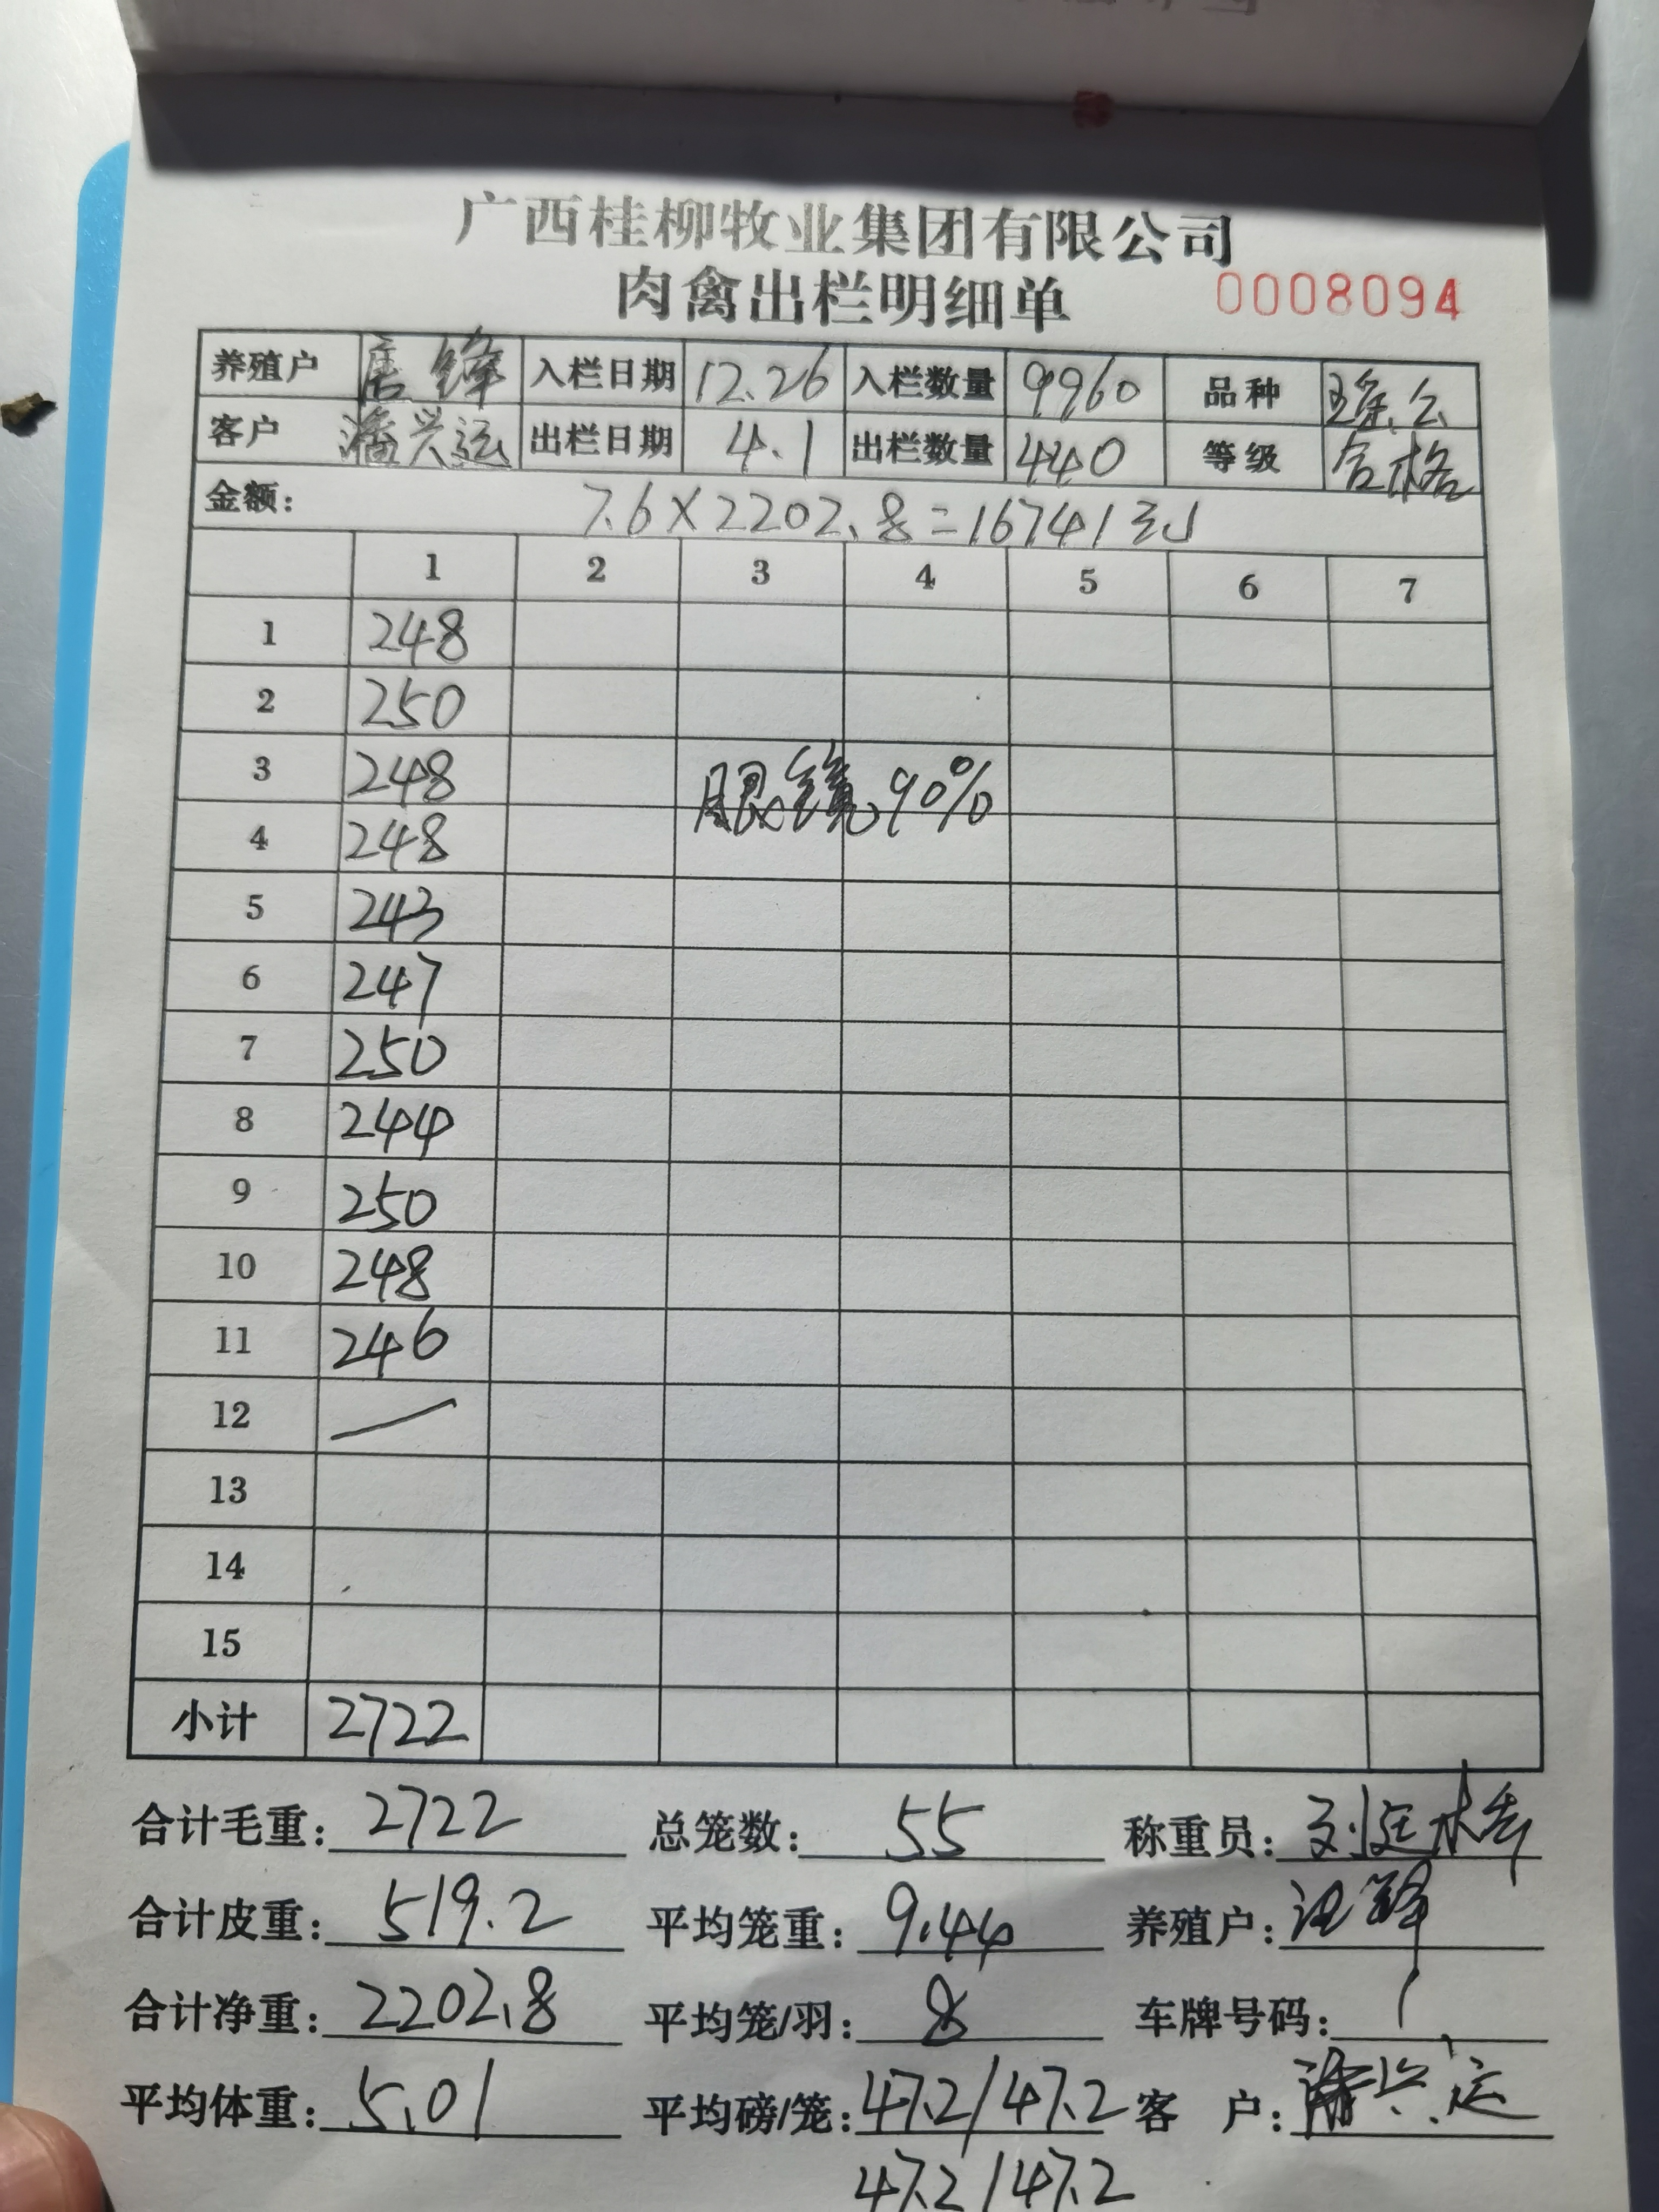 广西桂柳牧业集团有限公司
肉禽出栏明细单 0008094
养殖户 唐锋 入栏日期 12.26 入栏数量 9960 品种 公
客户 潘兴运 出栏日期 4.1 出栏数量 440 等级 合格
金额: 7.6×2202.8=16741
1 2 3 4 5 6 7
1 248
2 250
3 248 眼镜90%
4 248
5 243
6 247
7 250
8 244
9 250
10 248
11 246
12
13
14
15
小计 2722
合计毛重: 2722 总笼数: 55 称重员: 刘廷
合计皮重: 519.2 平均笼重: 9.44 养殖户:
合计净重: 2202.8 平均笼/羽: 8 车牌号码: /
平均体重: 5.01 平均磅/笼: 47.2/47.2 客 户: 潘兴运
47.2/47.2